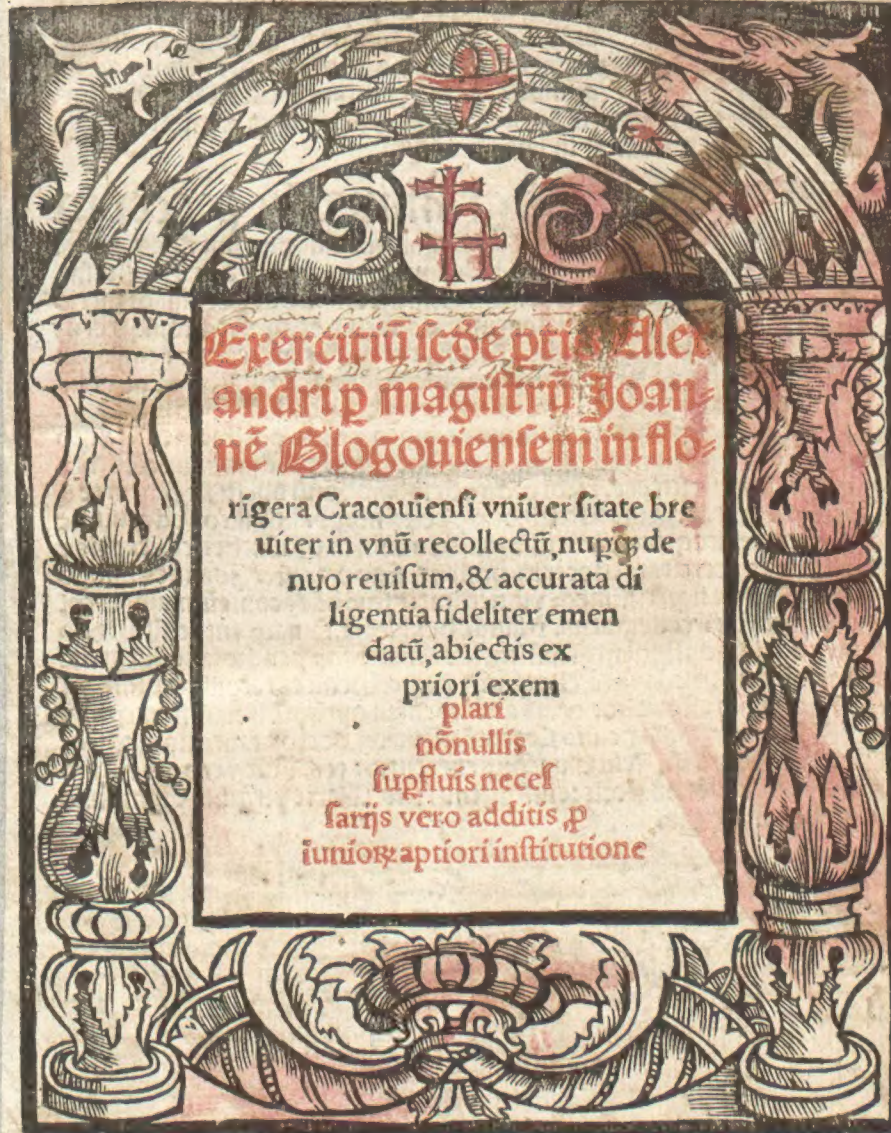 Exercitiũ ſcđe ꝑtis Alex
andri ꝑ magiſtrũ Joan⸗
nẽ Glogouienſem in flo⸗
rigera Cracouienſi vniuer ſitate bre
uiter in vnũ recollectũ, nuꝑqꝫ de
nuo reuiſum, & accurata di
ligentia fideliter emen
datũ, abiectis ex
priori exem
plari
nõnullis
ſuꝑfluis neceſ
ſarijs vero additis, ꝓ
iunioꝝ aptiori inſtitutione